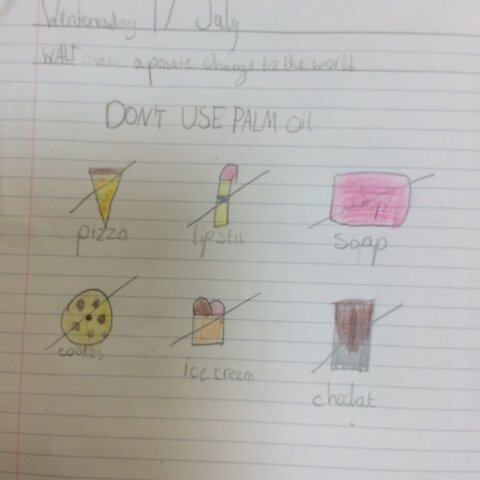 Wenkenesday 17 July
WALT make a postic change to the world
DON'T USE PALM oil
pizza lipstic soap
cookes ice creem choclat